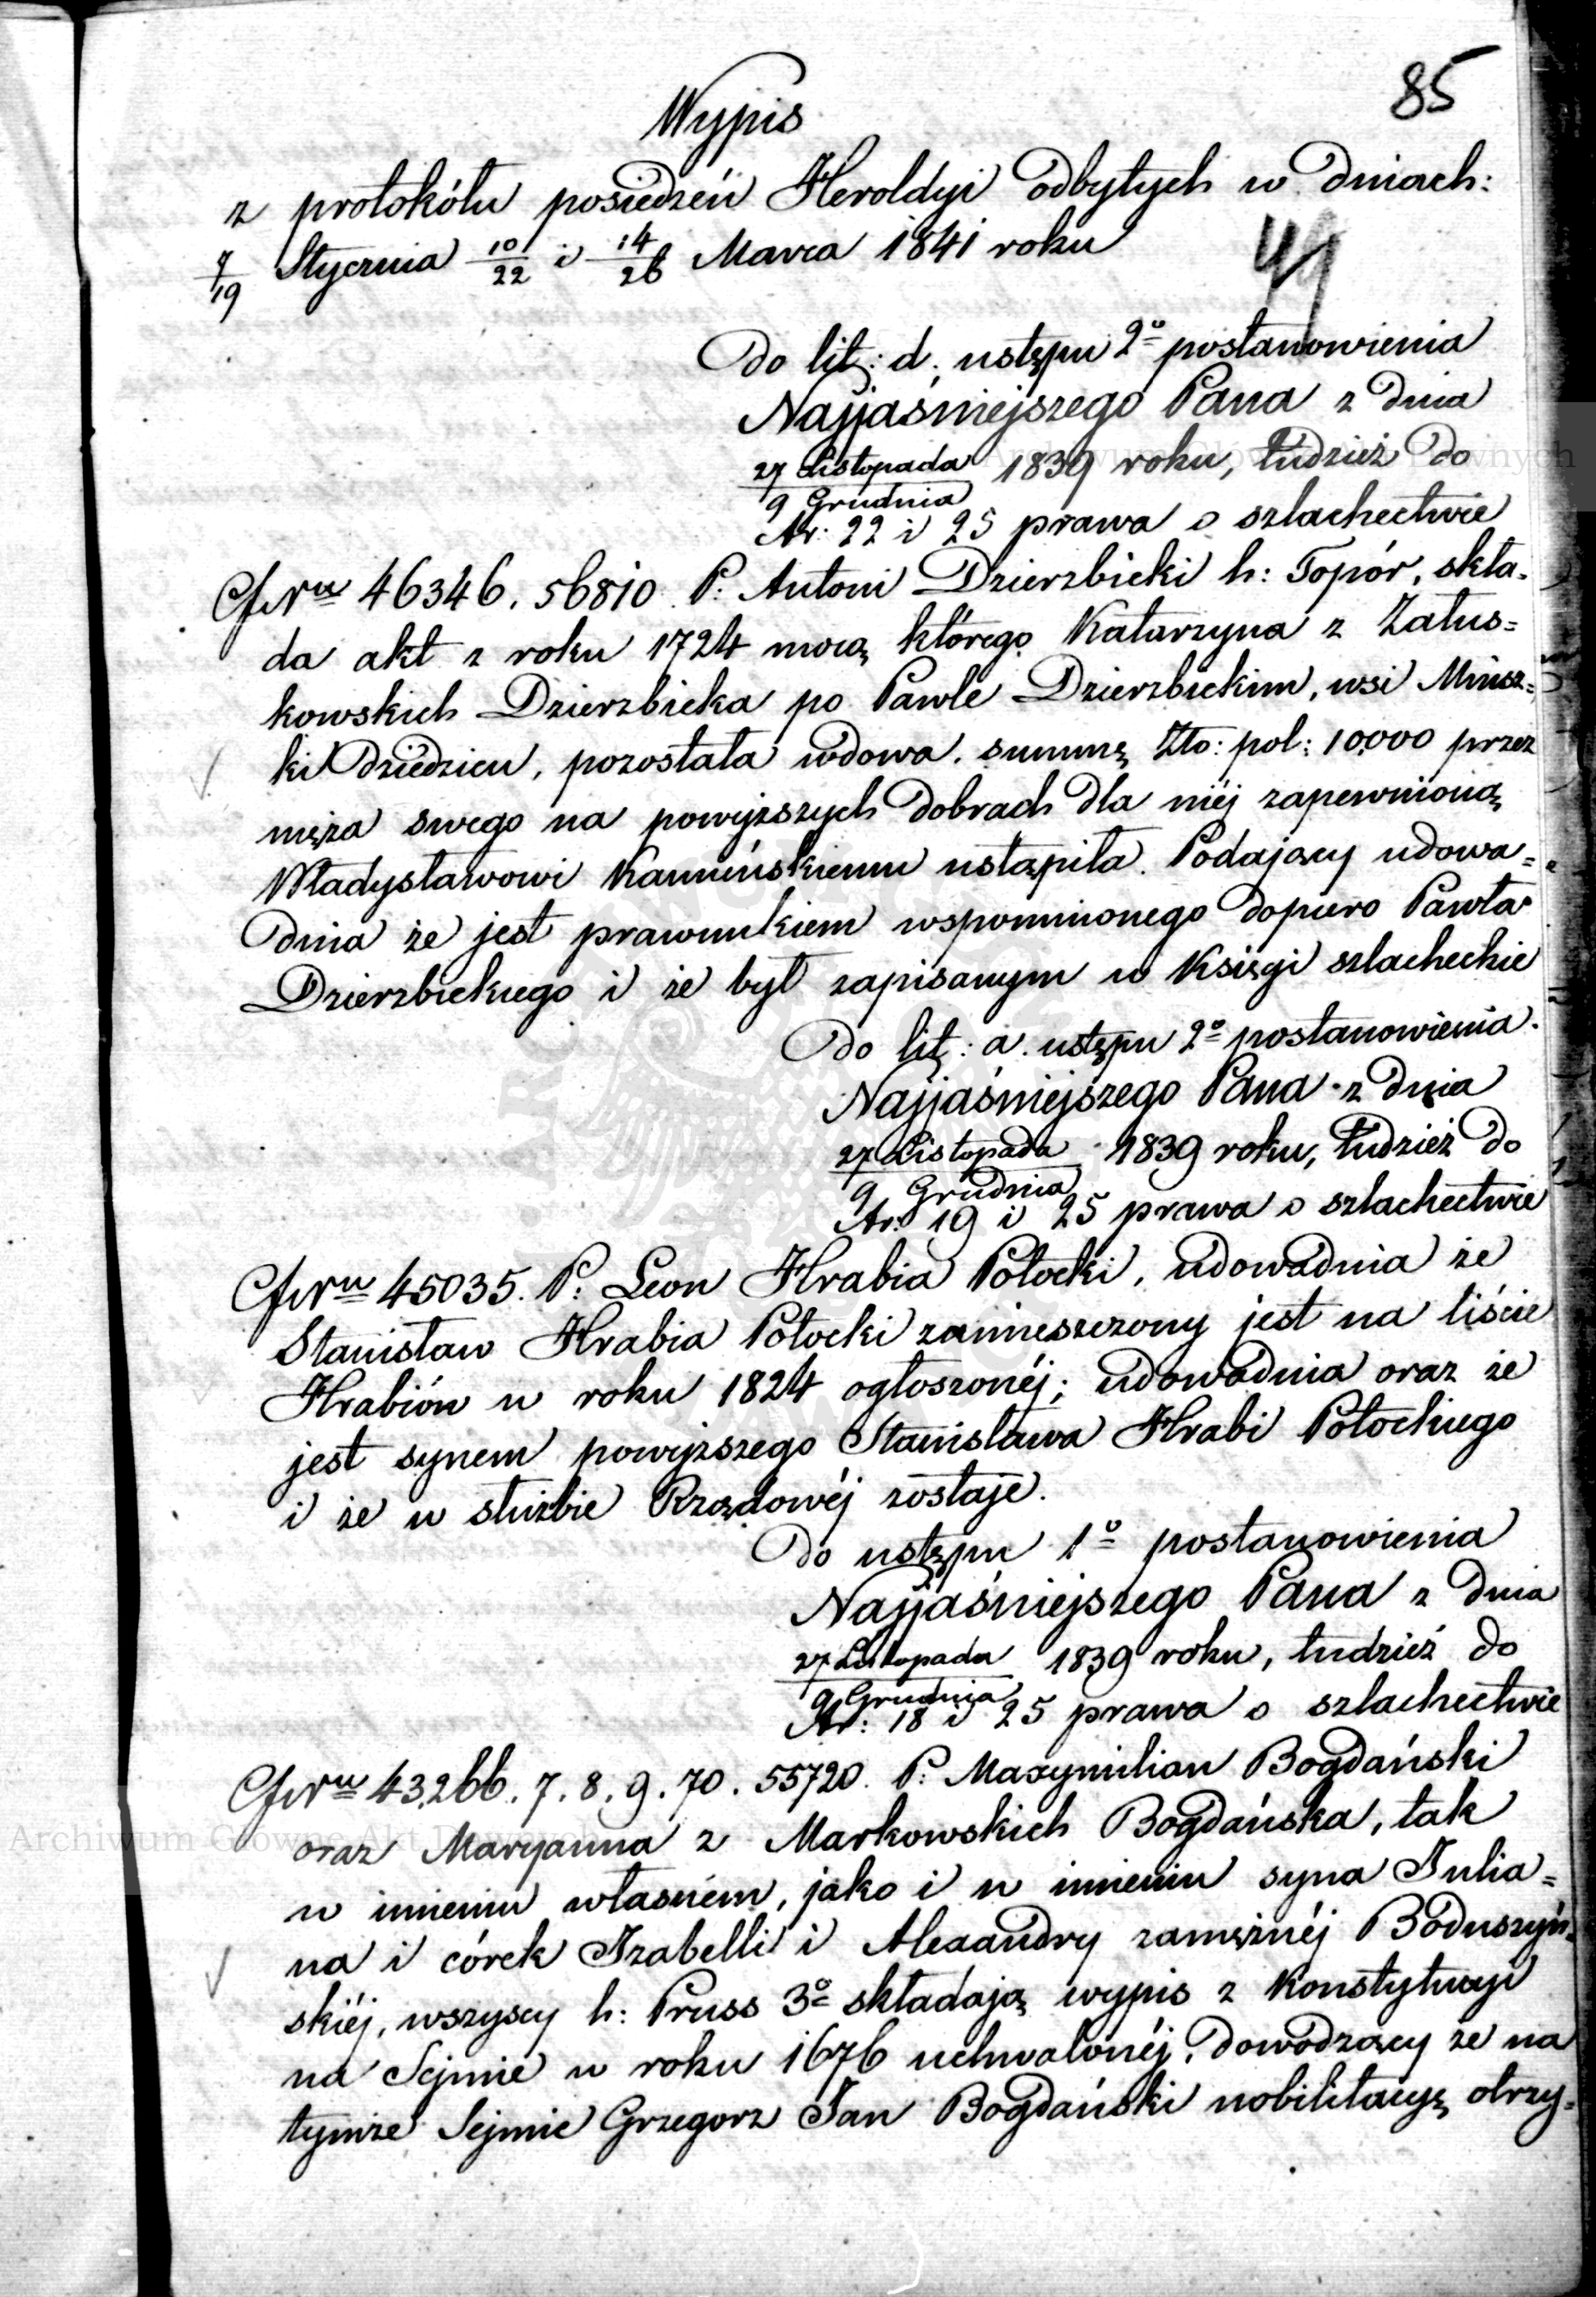 85
Wypis
z protokółu posiedzeń Heroldyi odbytych w dniach:
7/19 Stycznia 10/22 i 14/26 Marca 1841 roku
49
Do lit: d. ustępu 2º postanowienia
Najjaśniejszego Pana z dnia
27 Listopada / 9 Grudnia 1839 roku, tudzież do
Ar: 22 i 25 prawa o szlachectwie
46346. 56810. P: Antoni Dzierzbicki h: Topór, skła-
da akt z roku 1724 mocą którego Katarzyna z Załus=
kowskich Dzierzbicka po Pawle Dzierzbickim, wsi Minsz=
ki dziedzicu, pozostała wdowa. summę Zło: pol: 10,000 przez
męża swego na powyższych dobrach dla niéj zapewnioną
Władysławowi Kamińskiemu ustąpiła. Podający udowa=
dnia że jest prawnukiem wspomnionego dopiero Pawła
Dzierzbickiego i że był zapisanym w Księgi szlacheckie
Do lit: a. ustępu 2º postanowienia.
Najjaśniejszego Pana z dnia
27 Listopada / 9 Grudnia 1839 roku, tudzież do
Ar: 19 i 25 prawa o szlachectwie
45035. P: Leon Hrabia Potocki, udowadnia że
Stanisław Hrabia Potocki zamieszczony jest na liście
Hrabiów w roku 1824 ogłoszonéj; udowadnia oraz że
jest synem powyższego Stanisława Hrabi Potockiego
i że w służbie Rządowéj zostaje.
Do ustępu 1º postanowienia
Najjaśniejszego Pana z dnia
27 Listopada / 9 Grudnia 1839 roku, tudzież do
Ar: 18 i 25 prawa o szlachectwie
43,266. 7. 8. 9. 70. 55720. P: Maxymilian Bogdański
oraz Maryanna z Markowskich Bogdańska, tak
w imieniu własném, jako i w imieniu syna Julia=
na i córek Izabelli i Alexandry zamężnéj Boduszyń=
skiéj, wszyscy h: Pruss 3º składają wypis z Konstytucyi
na Sejmie w roku 1676 uchwalonéj, dowodzący że na
tymże Sejmie Grzegorz Jan Bogdański nobilitacyę otrzy=